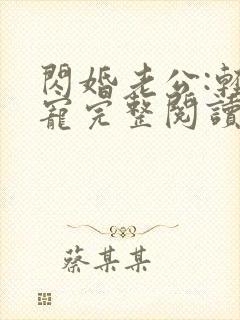 閃婚老公:輕
寵完整閱讀
蔡某某